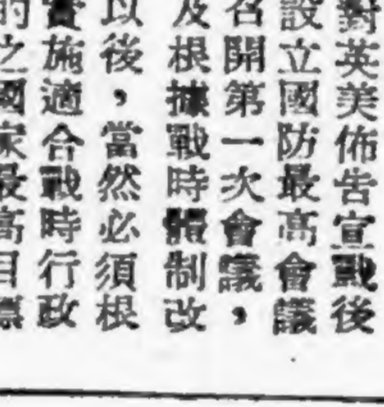 對英美佈告宣戰後
設立國防最高會議
名開第一次會議，
及根據戰時體制改
以後，當然必須根
實施適合戰時行政
的之國家最高目標